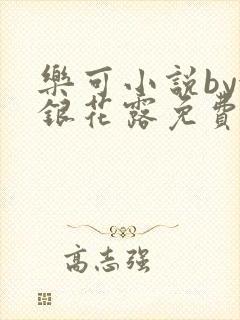 樂可小説by
銀花露免費
高志强